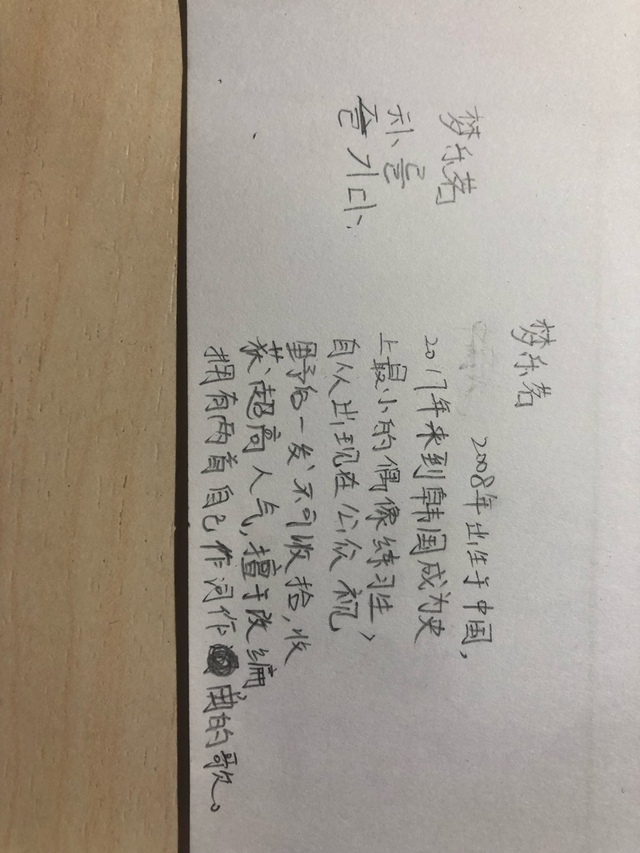 梦乐茗
차를
즐기다.
梦乐茗
2008年出生于中国,
2017年来到韩国成为史
上最小的偶像练习生,
自从出现在公众视
野后一发不可收拾,收
获超高人气,擅于改编
拥有两首自己作词作曲的歌。